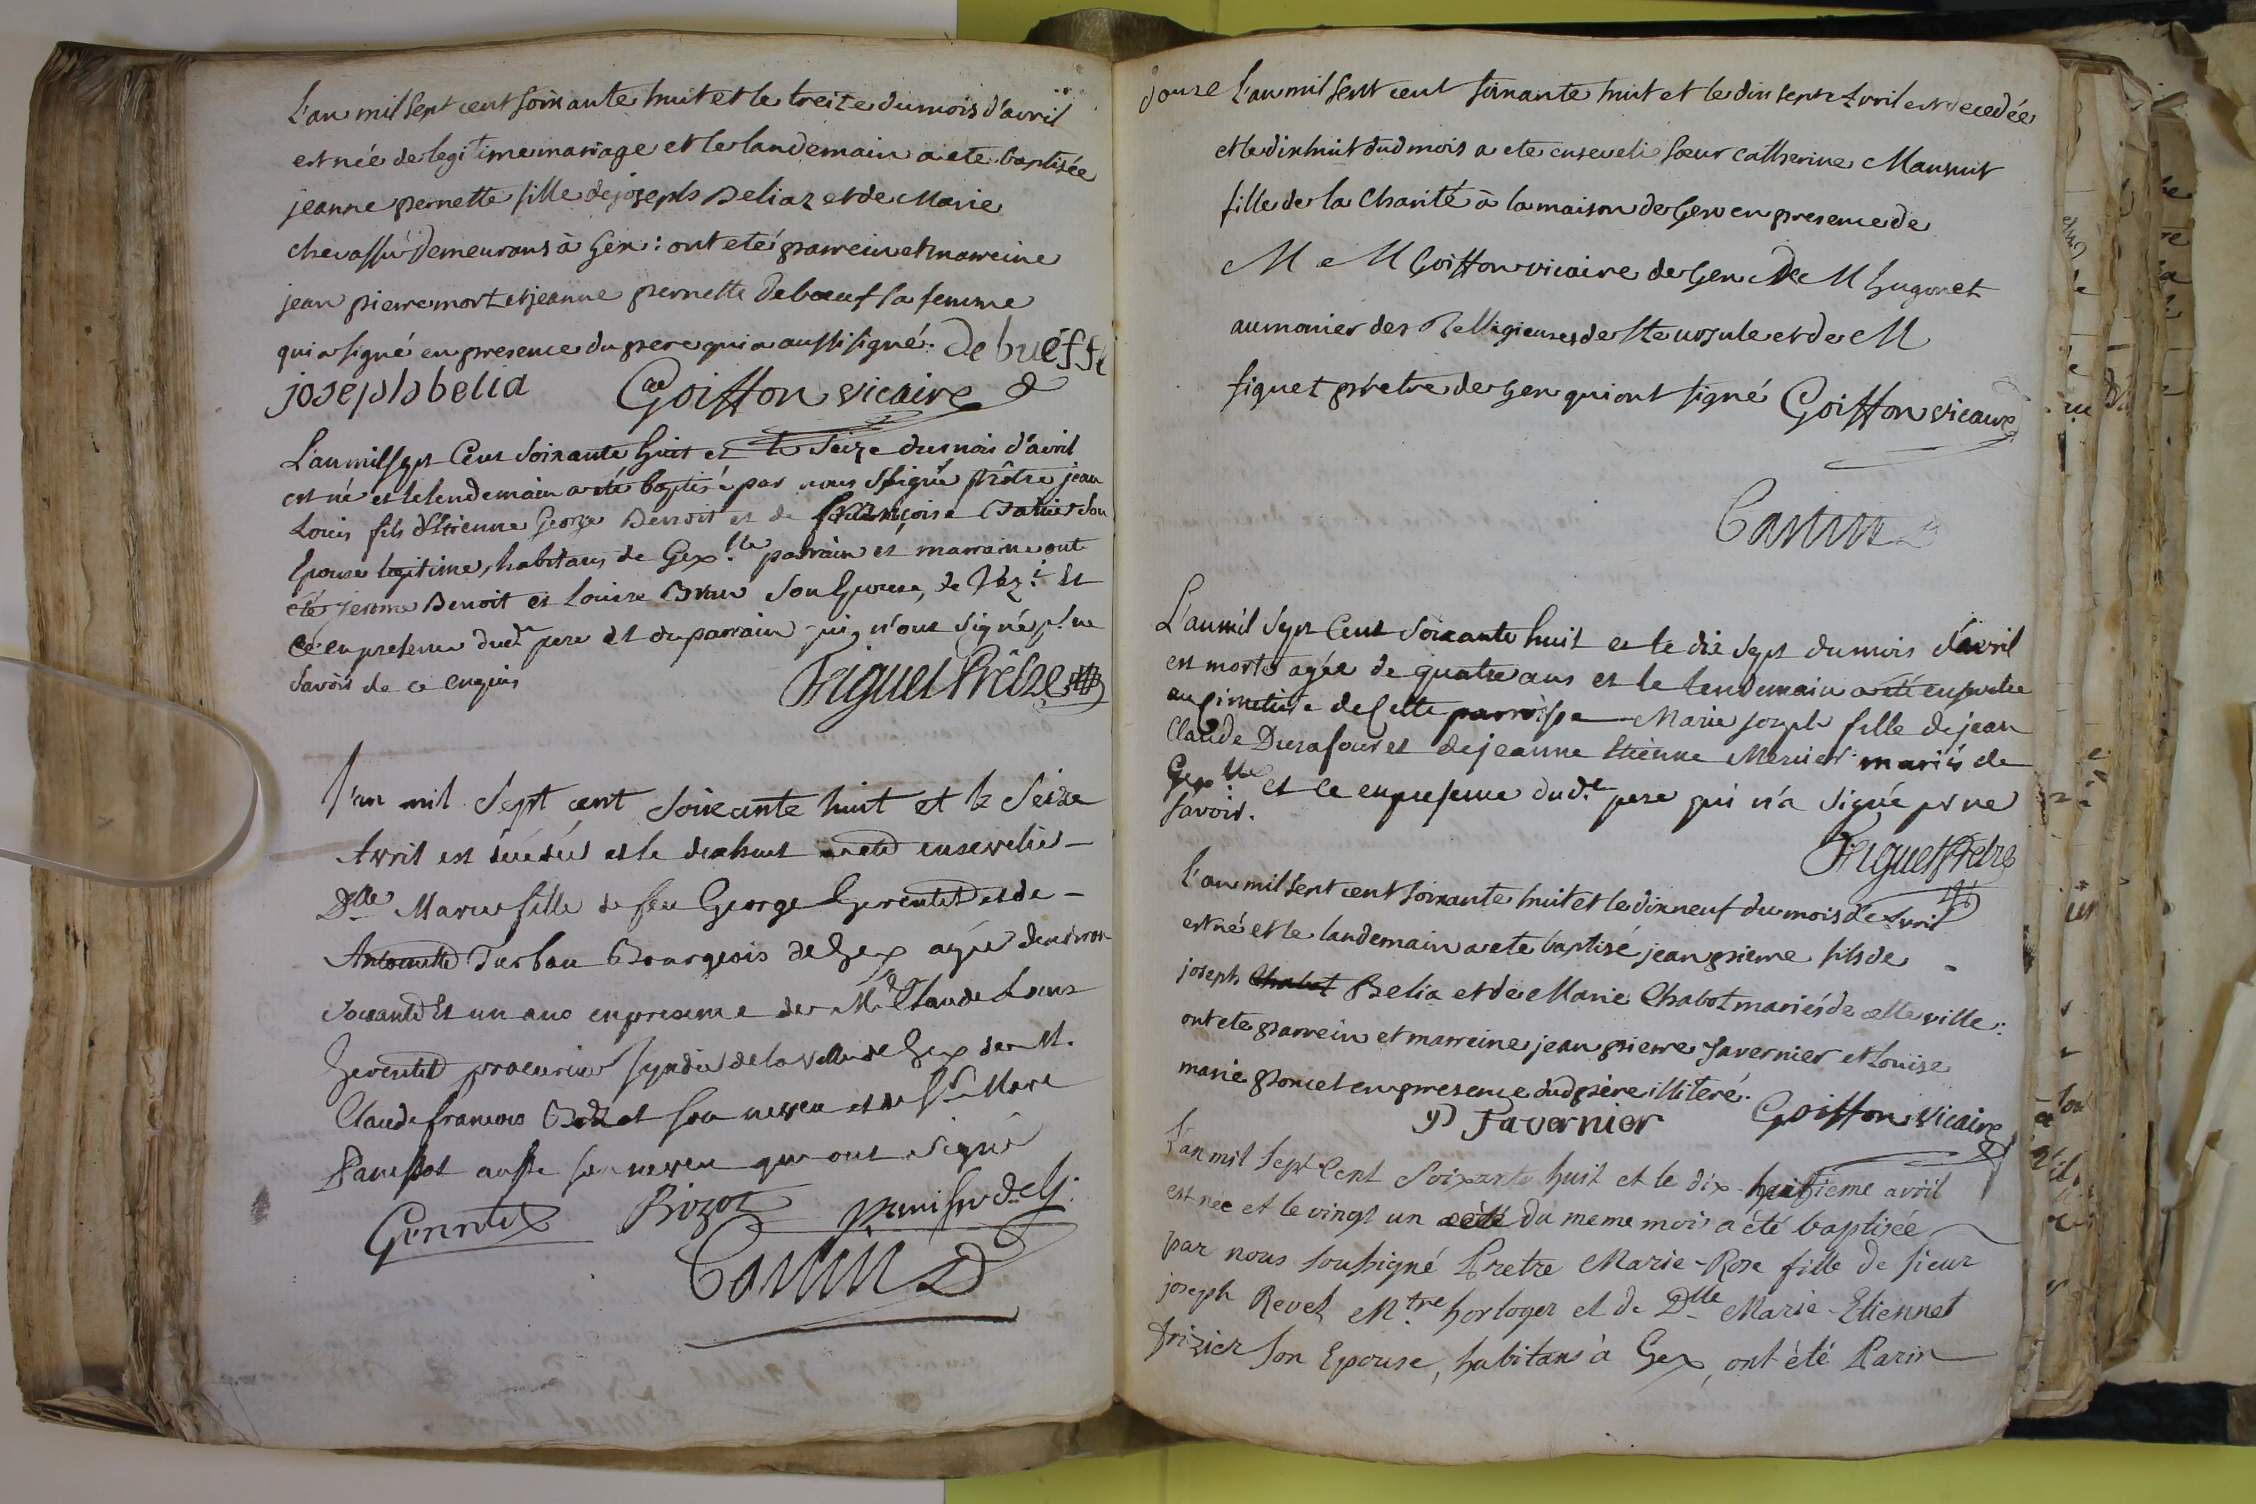 L'an mil sept cent soixante huit et le treize du mois d'avril
est née de legitime mariage et le landemain a ete baptisée
jeanne pernette fille de joseph Beliaz et de Marie
chevassu demeurans à Gex : ont eté parrein et marreine
jean pierre mort et jeanne pernette deboeuf sa femme
qui a signé en presence du pere qui a aussi signé. de buéff
joseph belia Goiffon vicaire
L'an mil sept Cent soixante huit et le seize du mois d'avril
est né et le lendemain a été baptisé par nous ssigné prêtre jean
Louis fils d'Etienne George Benoit et de françoise son
Epouse legitime, habitans de Gex lle parrain et marraine ont
été jerome Benoit et Louise son Epouse, de Et
ce en presence dud. pere et du parrain qui n'ont signé p. ne
savoir de ce enquis
Figuet Prêtre
L'an mil sept cent soixante huit et le seize
Avril est décédée et le dixhuit a eté ensevelie
Dlle Marie fille de feu George Gerentet et de
Antoinette Turban Bourgeois de Gex agée denviron
soixante et un ans en presence de Mr Claude Louis
Gerentet procureur syndic de la ville de Gex de M.
Claude françois Bizot son neveu et de Sr Marc
Panissot aussi son neveu qui ont signé
Gerentet Bizot
Castin
douze L'an mil sept cent soixante huit et le dix sept Avril est decedée
et le dix huit dud mois a ete enseveli soeur catherine Mansuit
fille de la Charité à la maison de Gex en presence de
M M Goiffon vicaire de Gex de M hugonet
aumonier des Religieuses de Ste ursule et de M
figuet prêtre de gex qui ont signé Goiffon vicaire
Castin
L'an mil sept Cent soixante huit et le dix sept du mois d'avril
est morte agée de quatre ans et le lendemain a été ensevelie
au Cimetiere de Cette parroisse Marie joseph fille de jean
Claude Durafour et de jeanne Etienne Mercier mariés de
Gex lle et ce en presence dud. pere qui n'a signé pr ne
savoir.
Figuet Prêtre
L'an mil sept cent soixante huit et le dix neuf du mois de Avril
est né et le landemain a ete baptisé jean pierre fils de
joseph Chabot Belia et de Marie Chabot mariés de cette ville :
ont ete parrein et marreine jean pierre Tavernier et Louise
marie poncet en presence dud pére illiteré.
P Tavernier Goiffon Vicaire
L'an mil sept Cent soixante huit et le dix-huitieme avril
est née et le vingt un du meme mois a été baptisée
par nous soussigné Pretre Marie-Rose fille de sieur
joseph Revet M.tre horloger et de Dlle Marie-Etiennet
frizier son Epouse, habitans à Gex, ont été Parin